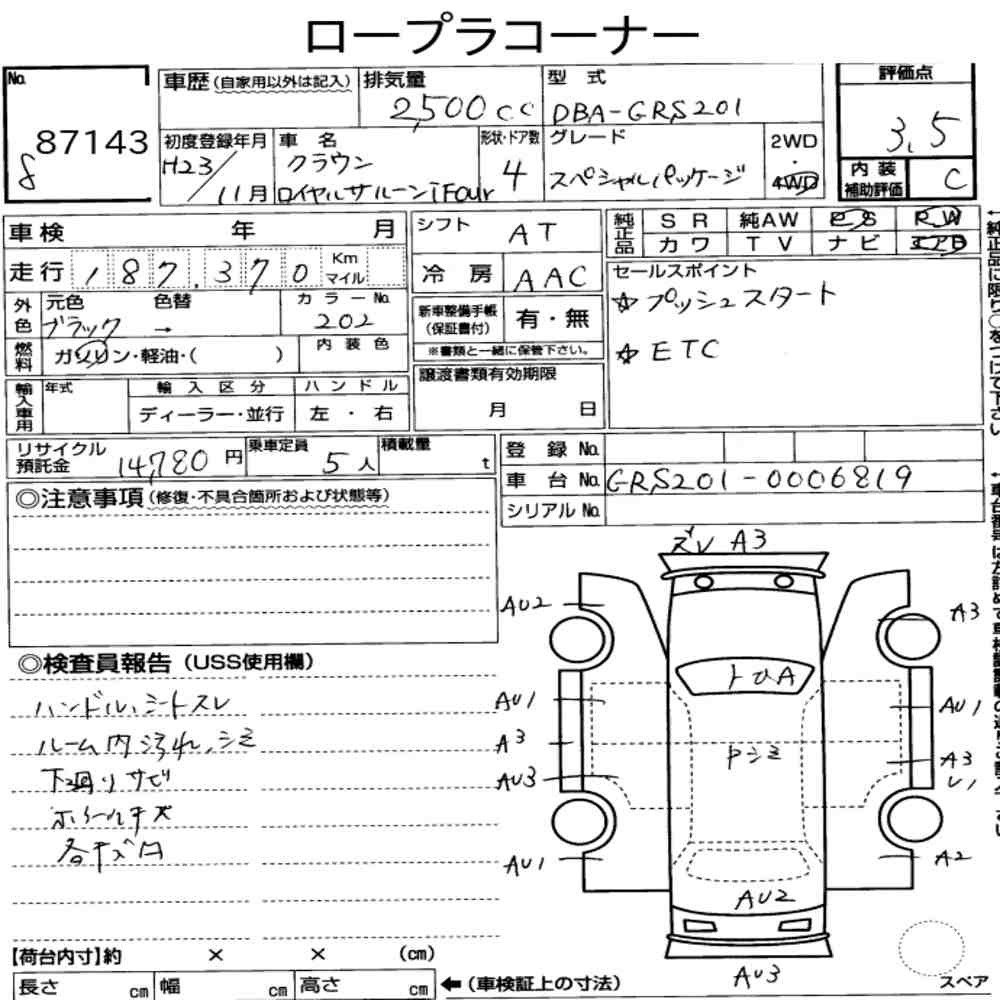 ロープラコーナー
No.
87143
8
車歴(自家用以外は記入)
排気量
2,500cc
型 式
DBA-GRS201
評価点
3.5
初度登録年月
H23/11月
車 名
クラウン
ロイヤルサルーン i Four
形状・ドア数
4
グレード
スペシャルパッケージ
2WD
・
4WD
内装
補助評価
C
車検 年 月
シフト
AT
純正品
SR 純AW PS PW
カワ TV ナビ エアB
走行 187,370 Km マイル
冷房 AAC
セールスポイント
☆プッシュスタート
☆ETC
外色
元色 色替
ブラック →
カラーNo.
202
新車整備手帳
(保証書付)
有・無
※書類と一緒に保管下さい。
燃料
ガソリン・軽油・( )
内装色
譲渡書類有効期限
月 日
輸入車用
年式
輸入区分
ディーラー・並行
ハンドル
左・右
リサイクル
預託金
14,780円
乗車定員
5人
積載量
t
登録No.
車台No. GRS201-0006819
シリアルNo.
◎注意事項(修復・不具合箇所および状態等)
◎検査員報告(USS使用欄)
ハンドル、シートスレ
ルーム内汚れ、シミ
下廻りサビ
ホイールキズ
各キズ凹
ズレ A3
AU2
A3
トびA
AU1
AU1
A3
Pシミ
A3
AU3
AU1
A2
AU2
AU3
スペア
【荷台内寸】約 × × (cm)
長さ cm 幅 cm 高さ cm
←(車検証上の寸法)